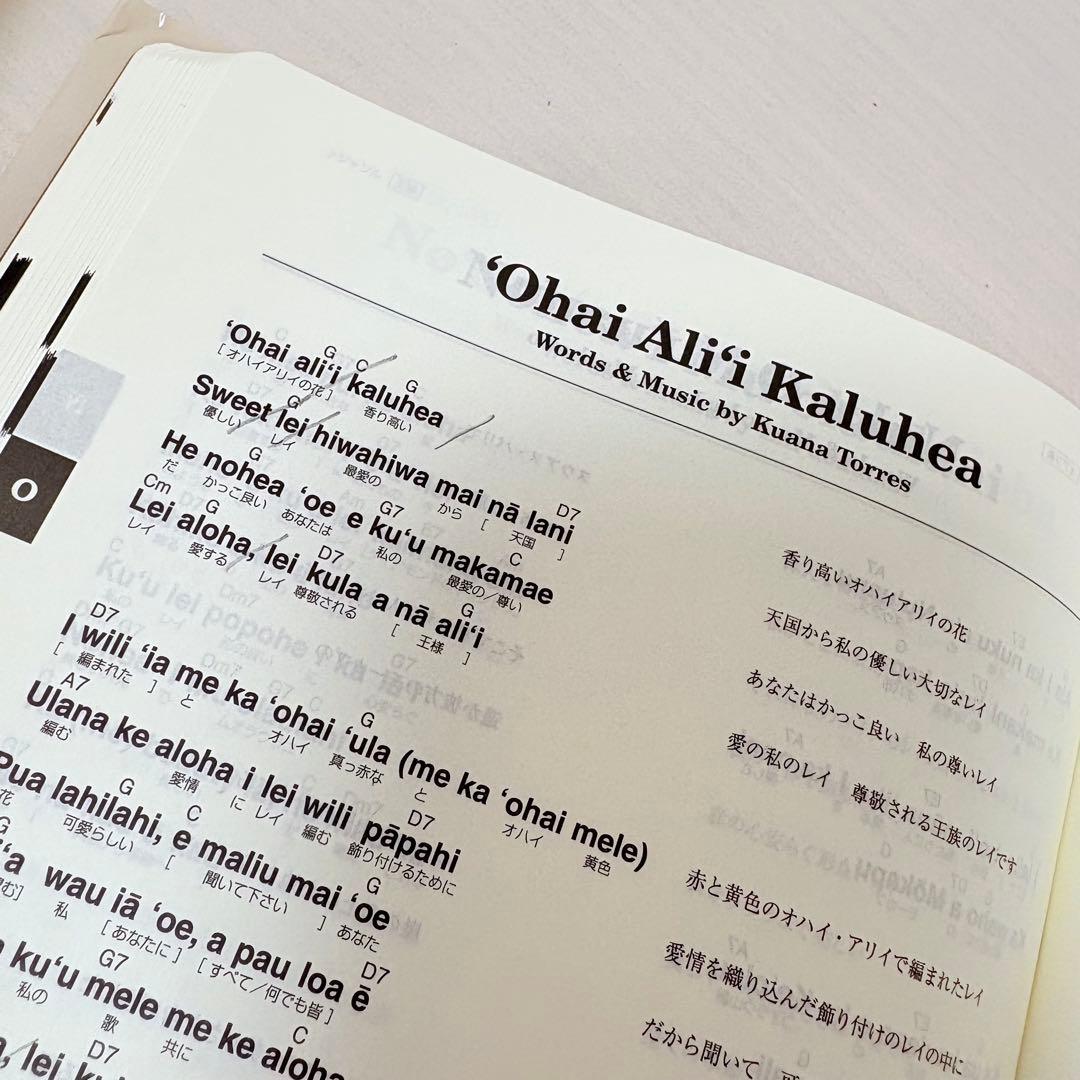 ‘Ohai Ali‘i Kaluhea
Words & Music by Kuana Torres
G C G
‘Ohai ali‘i kaluhea
[ オハイアリイの花 ] 香り高い
G D7
Sweet lei hiwahiwa mai nā lani
優しい レイ 最愛の から [ 天国 ]
G G7 C
He nohea ‘oe e ku‘u makamae
だ かっこ良い あなたは 私の 最愛の／尊い
Cm G D7 G
Lei aloha, lei kula a nā ali‘i
レイ 愛する レイ 尊敬される [ 王様 ]
D7 G
I wili ‘ia me ka ‘ohai ‘ula (me ka ‘ohai mele)
[ 編まれた ] と オハイ 真っ赤な と オハイ 黄色
A7 D7
Ulana ke aloha i lei wili pāpahi
編む 愛情 に レイ 編む 飾り付けるために
G C G
Pua lahilahi, e maliu mai ‘oe
花 可愛らしい [ 聞いて下さい ] あなた
G D7
‘a wau iā ‘oe, a pau loa ē
私 [ あなたに ] [ すべて／何でも皆 ]
G7 C
ku‘u mele me ke aloha
私の 歌 共に
D7
lei
香り高いオハイアリイの花
天国から私の優しい大切なレイ
あなたはかっこ良い 私の尊いレイ
愛の私のレイ 尊敬される王族のレイです
赤と黄色のオハイ・アリイで編まれたレイ
愛情を織り込んだ飾り付けのレイの中に
だから聞いて
O